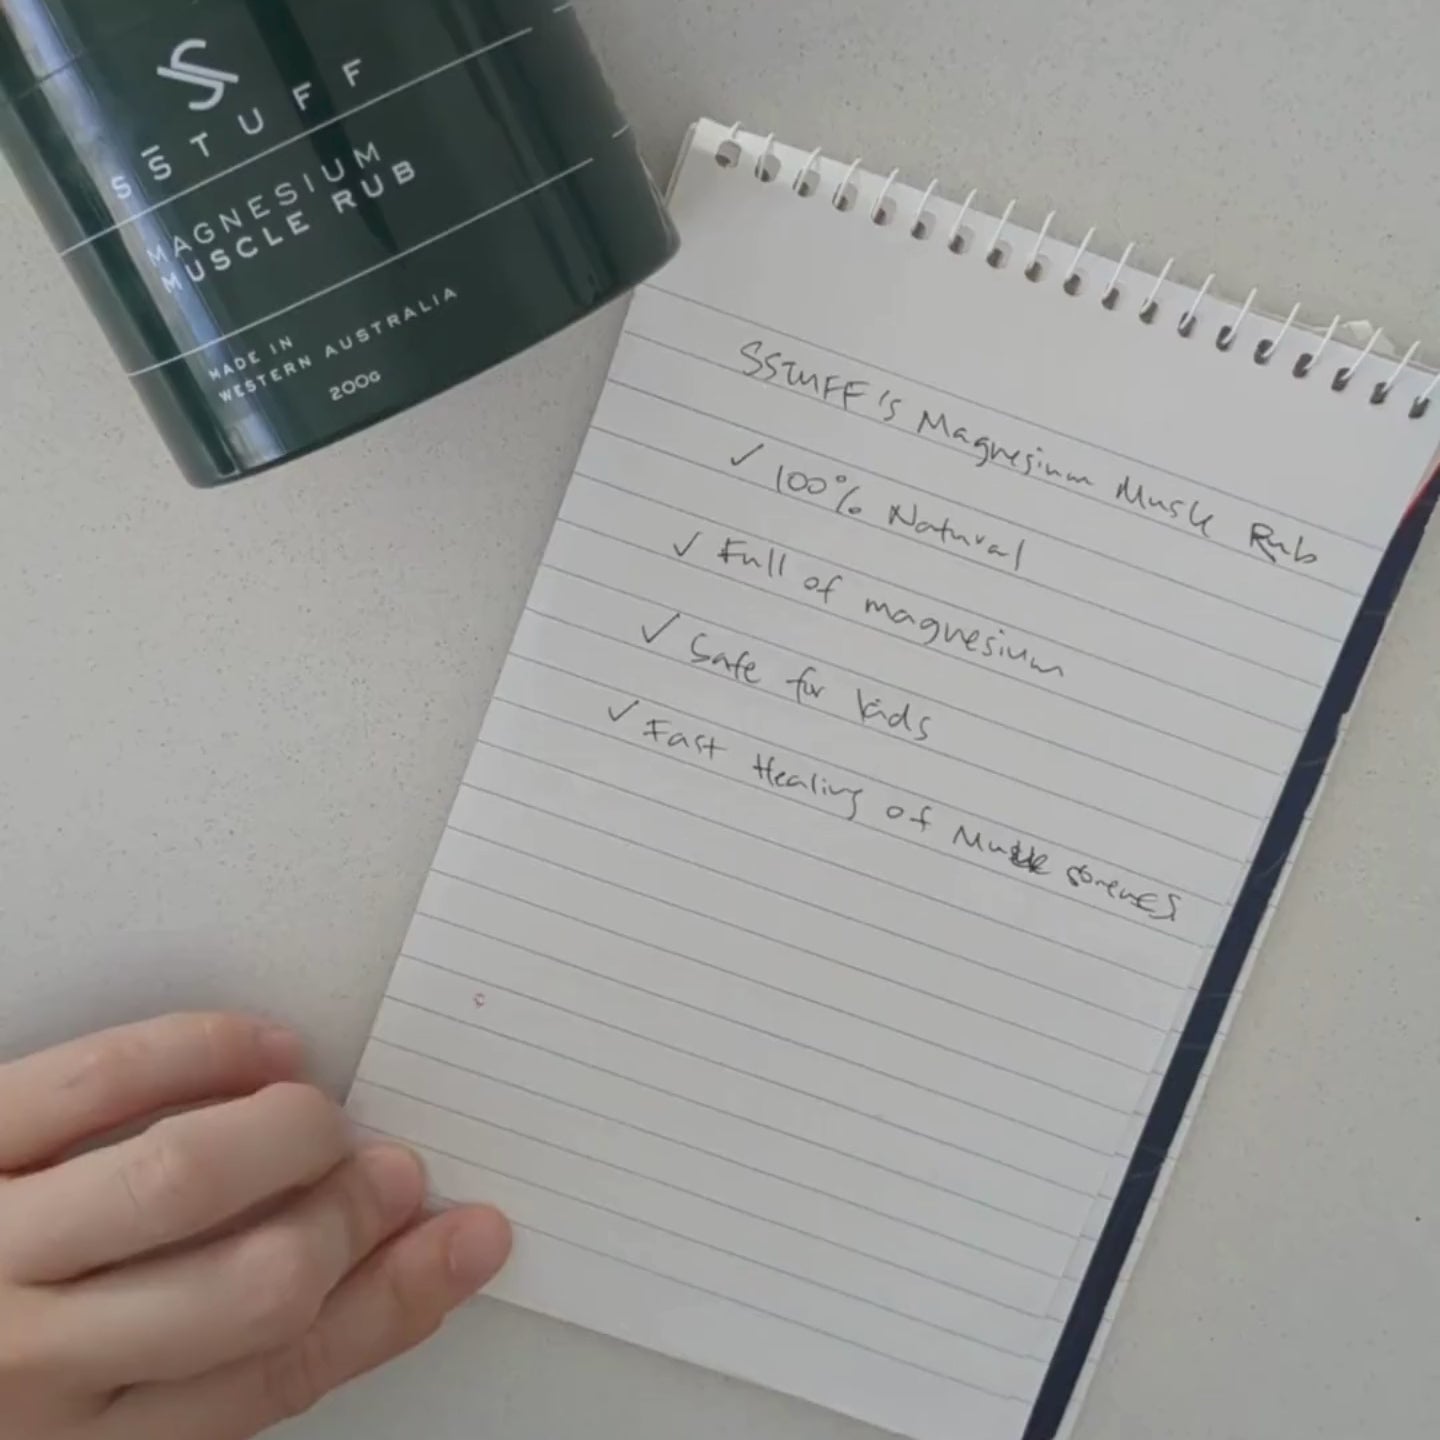 SSTUFF
MAGNESIUM
MUSCLE RUB
MADE IN
WESTERN AUSTRALIA
200G
SSTUFF's Magnesium Muscle Rub
✓ 100% Natural
✓ Full of magnesium
✓ Safe for kids
✓ Fast Healing of Muscle soreness